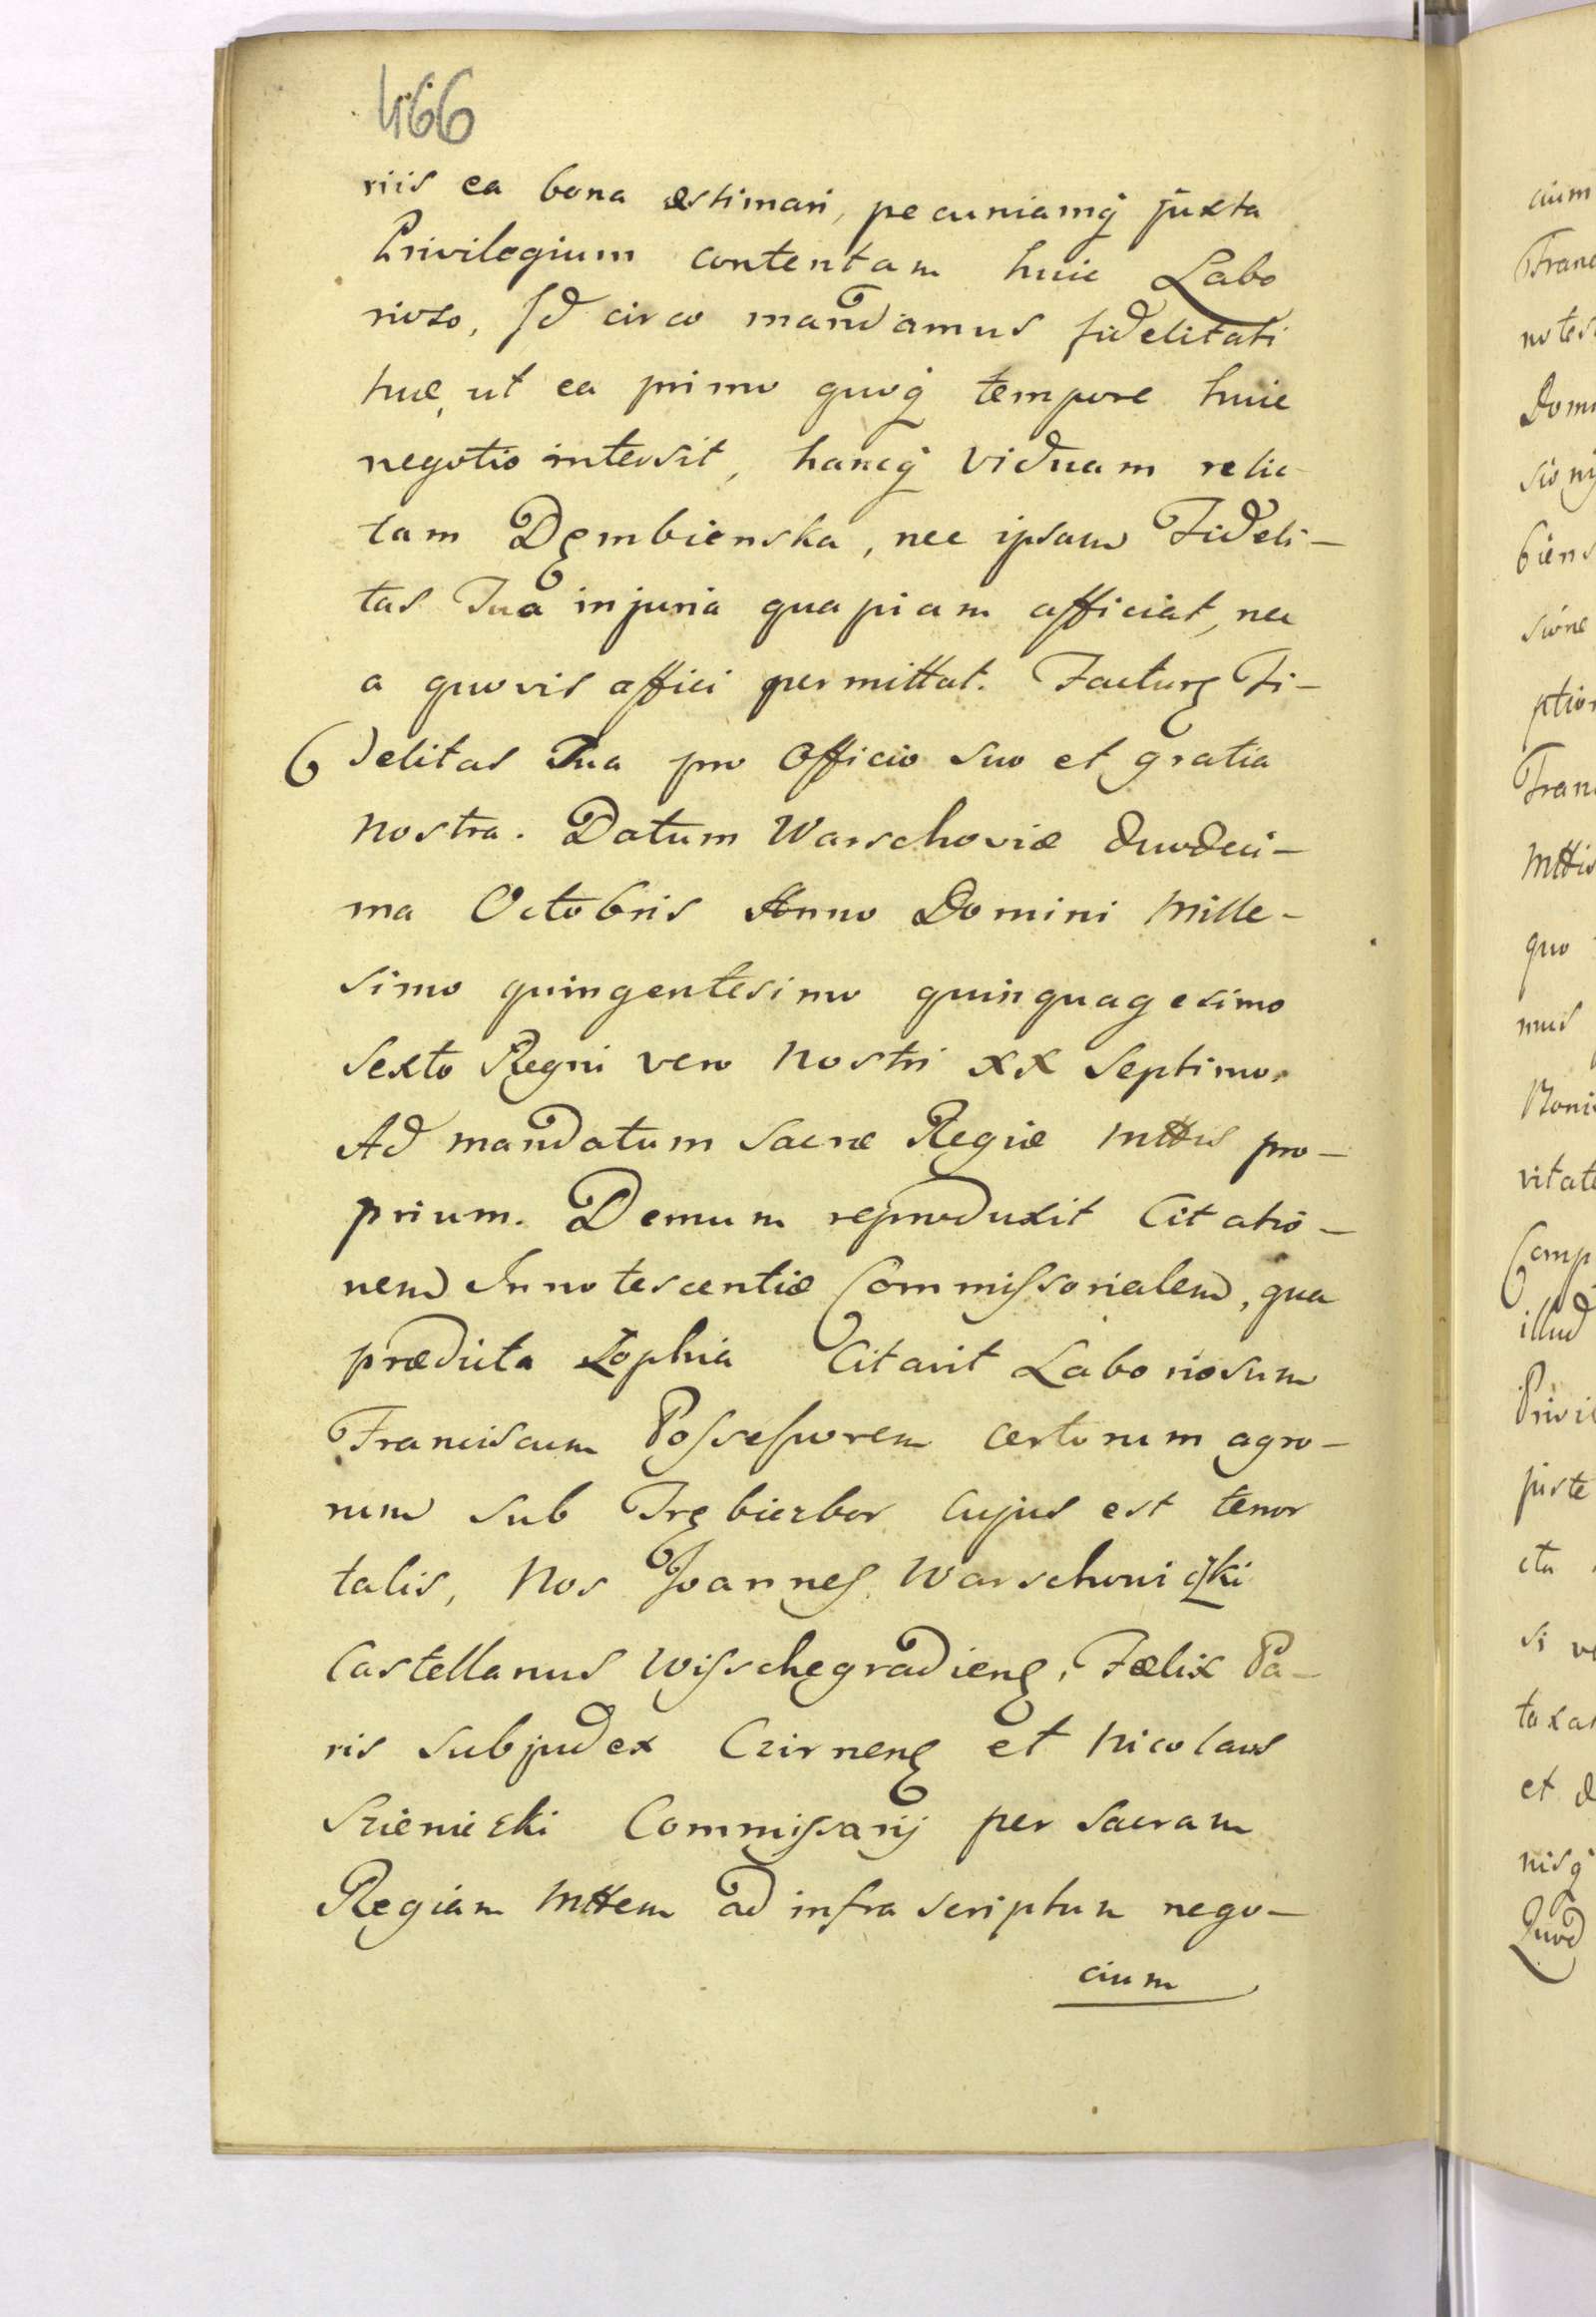 466
riis ea bona æstimari, pecuniamq́ juxta
Privilegium contentam huic Labo
rioso, Id circo mandamus fidelitati
tuæ, ut ea primo quoq́ tempore huic
negotio intersit, hancq́ viduam relic
tam Dęmbienska, nec ipsam Fideli-
tas Tua injuria quapiam afficiat, nec
a quovis affici permittat. Facturę Fi-
delitas Tua pro Officio suo et gratia
nostra. Datum Warschoviæ duodeci-
ma Octobris Anno Domini Mille-
simo quingentesimo quinquagesimo
Sexto Regni vero Nostri XX Septimo.
Ad mandatum Sacræ Regiæ Mttis pro-
prium. Demum reproduxit Citatio-
nem Innotescentiæ Commissorialem, qua
prædicta Zophia Citavit Laboriosum
Franciscum Possessorem certorum agro-
rum sub Trębierbor cujus est tenor
talis, Nos Joannes Warschouiczki
Castellanus Wisschegradienę, Fælix Pa-
ris Subjudex Czirnenę et Nicolaus
Szieniczki Commissarij per Sacram
Regiam Mttem ad infra scriptum nego-
cium
cium
Franc
notes
Domi
siony
biens
sione
ption
Fran
Mttis
quo
mus
Boni
vitate
Comp
illud
Privi
juste
cta
si ve
taxat
et d
nisq́
Quod